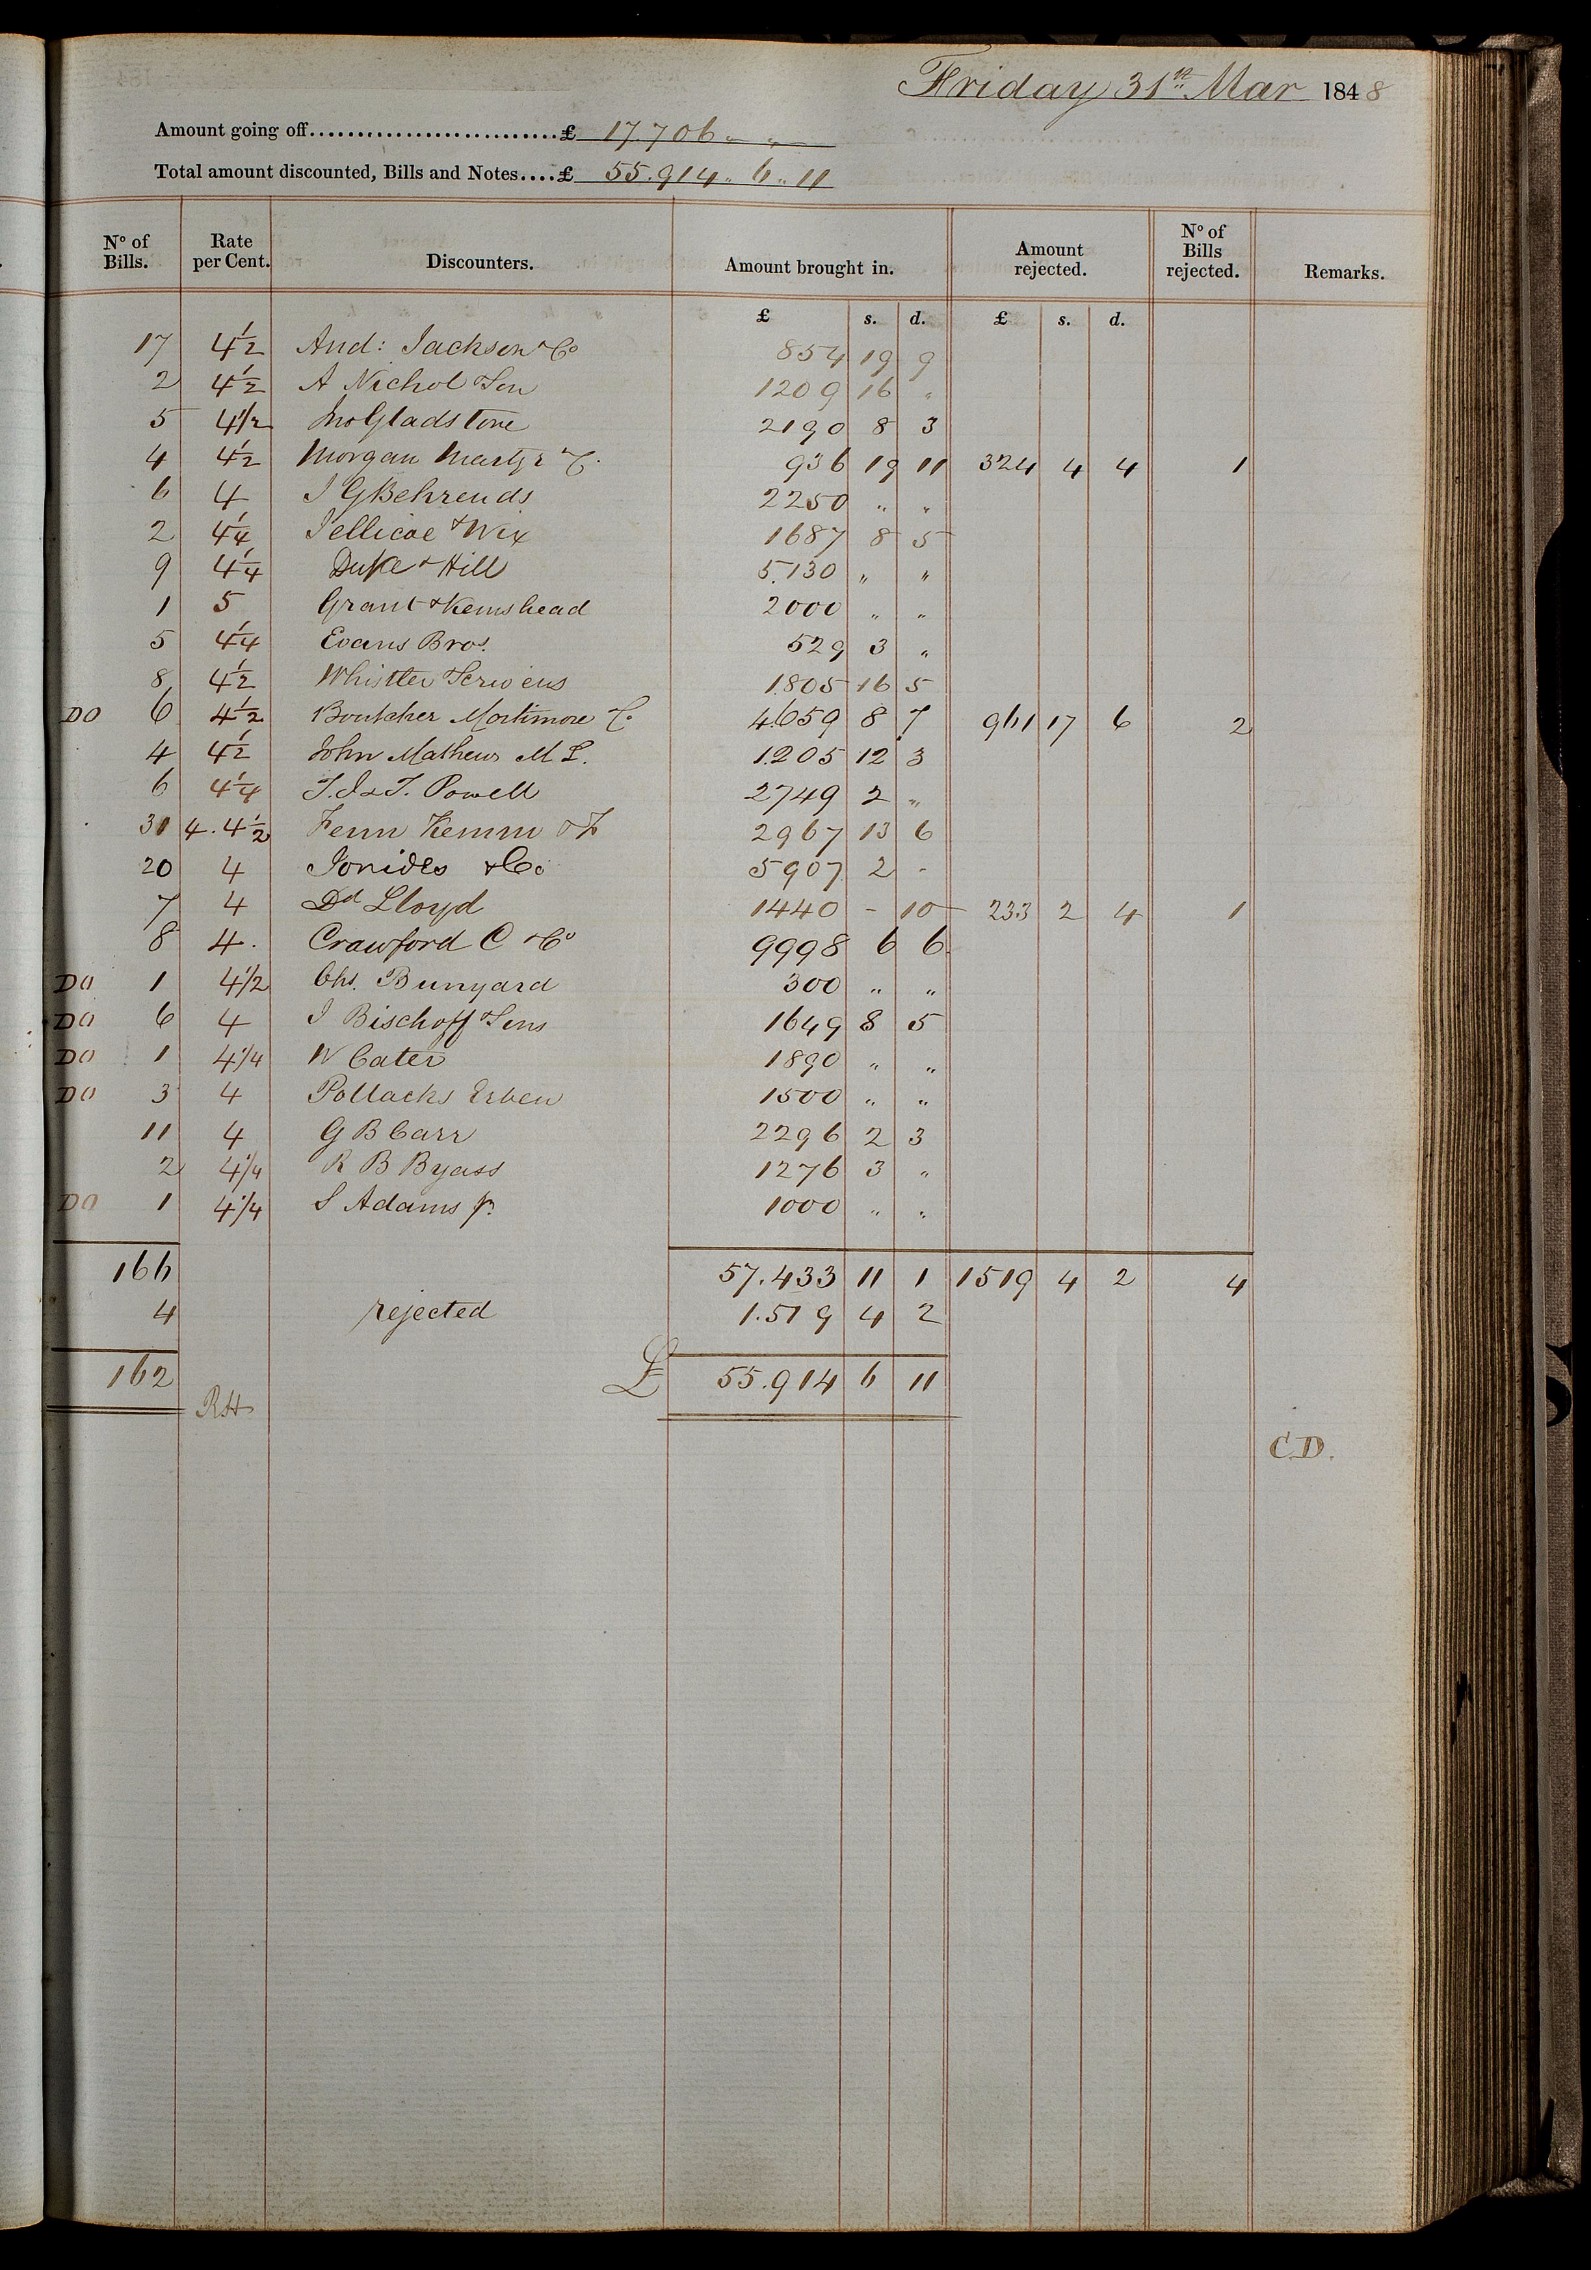 Friday 31st Mar 1848
Amount going off........................£ 17.706 " "
Total amount discounted, Bills and Notes....£ 55.914 " 6 " 11
No of Bills. Rate per Cent. Discounters. Amount brought in. Amount rejected. No of Bills rejected. Remarks.
£ s. d. £ s. d.
17 4½ And: Jackson & Co 854 19 9
2 4½ A Nichol & Son 1209 16 "
5 4½ Jno Gladstone 2190 8 3
4 4½ Morgan Martyr & C. 936 19 11 324 4 4 1
6 4 J G Behrends 2250 " "
2 4¼ Jellicoe & Wix 1687 8 5
9 4¼ Duke & Hill 5.130 " "
1 5 Grant & Kemshead 2000 " "
5 4¼ Evans Bros. 529 3 "
8 4½ Whistler & Scrivens 1.805 16 5
DO 6 4½ Boutcher Mortimore & C. 4.659 8 7 961 17 6 2
4 4½ John Mathews M L. 1.205 12 3
6 4¼ T. J & T. Powell 2749 2 "
31 4. 4½ Fenn Kemm & F 2967 13 6
20 4 Ionides & Co 5907 2 -
7 4 Dd Lloyd 1440 - 10 233 2 4 1
8 4. Crawford C & Co 9998 6 6
DO 1 4½ Chs. Bunyard 300 " "
DO 6 4 J Bischoff & Sons 1649 8 5
DO 1 4¼ W Cater 1890 " "
DO 3 4 Pollacks Erben 1500 " "
11 4 G B Carr 2296 2 3
2 4¼ R B Byass 1276 3 "
DO 1 4¼ S Adams jr. 1000 " "
166 57.433 11 1 1519 4 2 4
4 rejected 1.519 4 2
162 £ 55.914 6 11
RH
C.D.